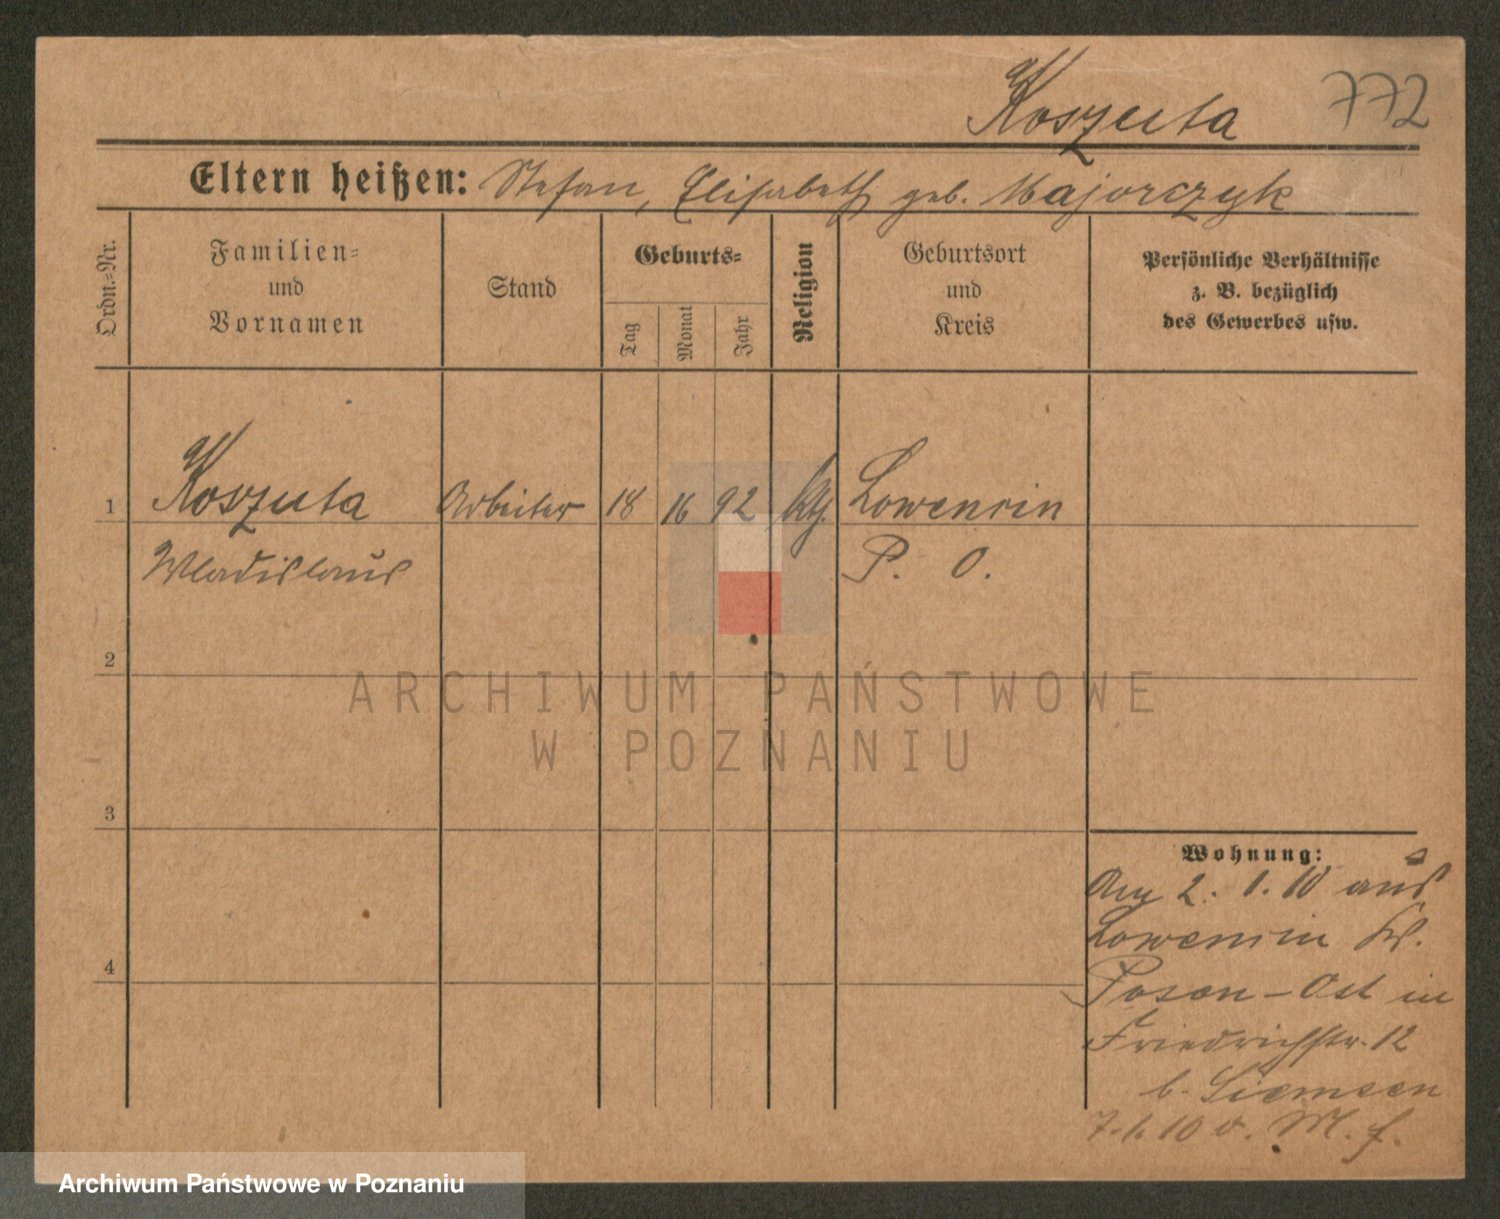 Koszuta 772
Eltern heißen: Stefan, Elisabeth geb. Majorczyk
Ordn.-Nr.
Familien-
und
Vornamen
Stand
Geburts-
Tag
Monat
Jahr
Religion
Geburtsort
und
Kreis
Persönliche Verhältnisse
z. B. bezüglich
des Gewerbes usw.
1 Koszuta Arbeiter 18 16 92 kth. Lowencin
Wladislaus P. O.
2
3
4
Wohnung:
2. 1. 10 aus
Lowencin Kr.
Posen-Ost in
Friedrichstr. 12
b. Siemsen
7. 1. 10 v. M. f.
ARCHIWUM PAŃSTWOWE
W POZNANIU
Archiwum Państwowe w Poznaniu